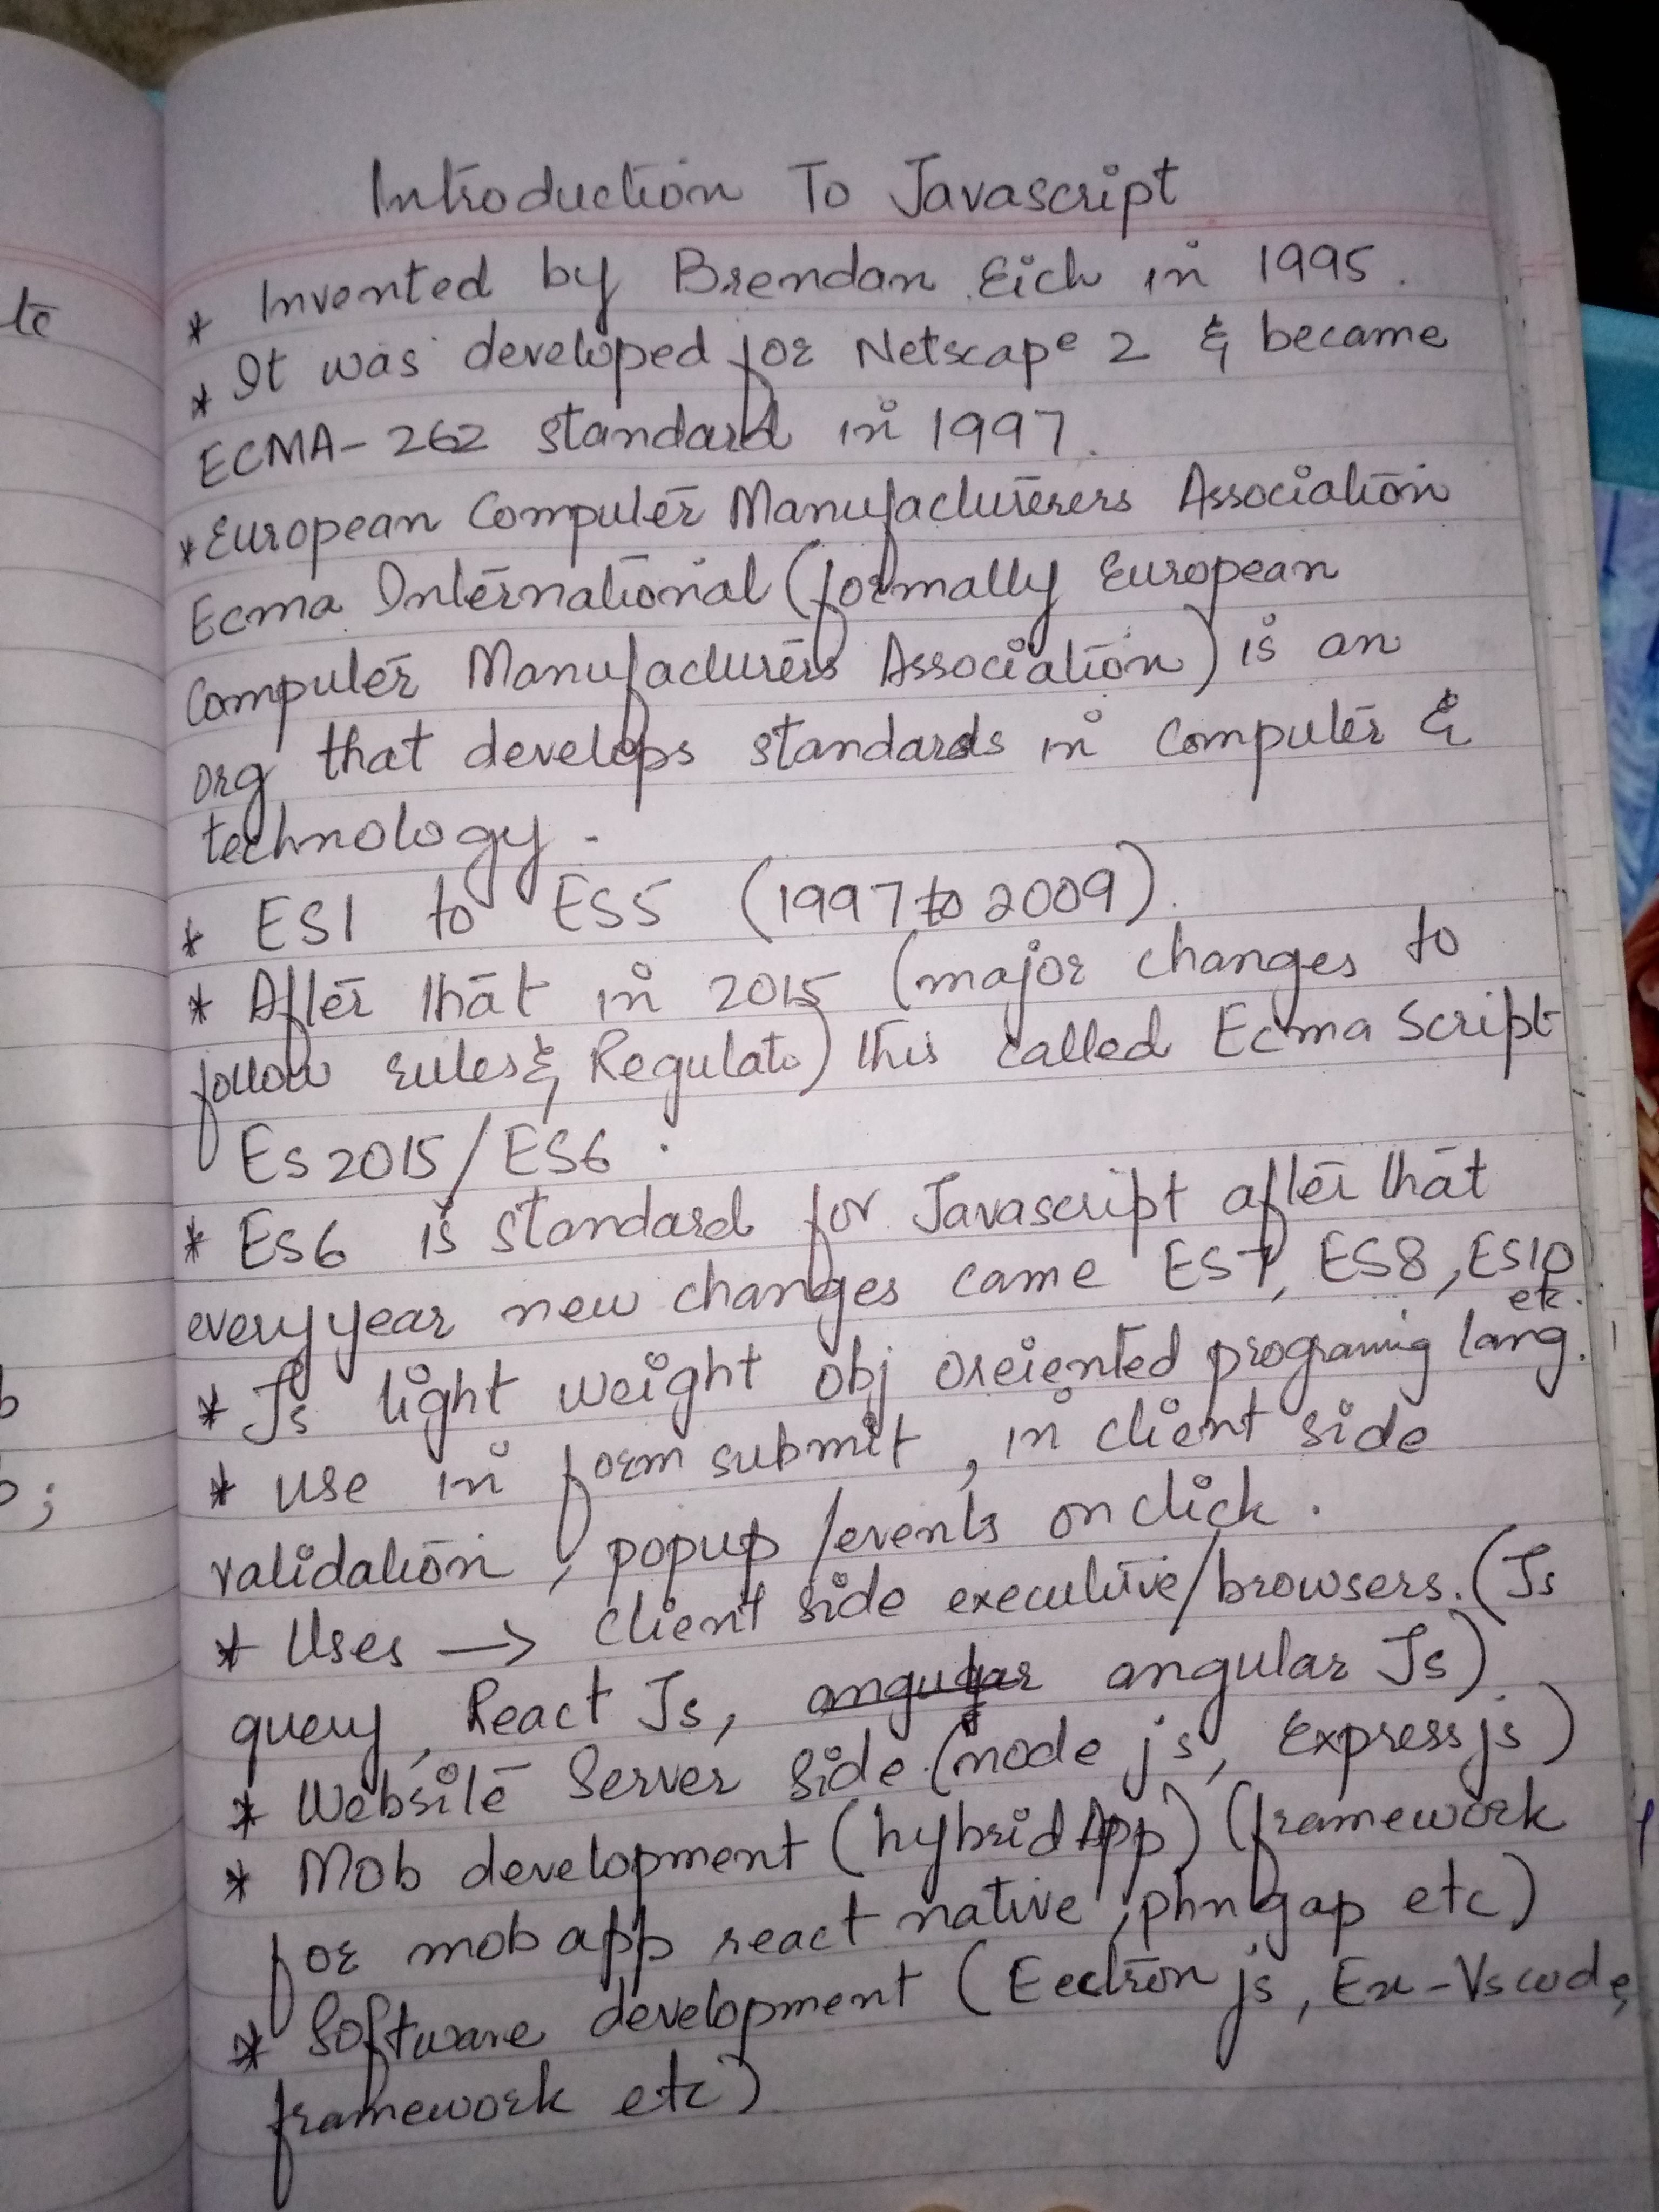 Introduction To Javascript
* Invented by Brendan Eich in 1995.
* It was developed for Netscape 2 & became
ECMA-262 standard in 1997.
* European Computer Manufacturerers Association
Ecma International (formally European
Computer Manufacturers Association) is an
org that develops standards in Computer &
technology.
* ES1 to ES5 (1997 to 2009).
* After that in 2015 (major changes to
follow rules & Regulato) this called Ecma Script
Es 2015/ES6.
* Es6 is standard for Javascript after that
every year new changes came ES7, ES8, ES10
etc.
* Js light weight obj oreiented programing lang.
* use in form submit, in client side
validation, popup /events on click.
* Uses → client side executive/browsers. (Js
query, React Js, angular angular Js)
* Website Server Side (node js, Express js)
* Mob development (hybrid App) (framework
for mob app react native, phngap etc)
* Software development (Eectron js, Ex-Vs code,
framework etc)
te
b
;